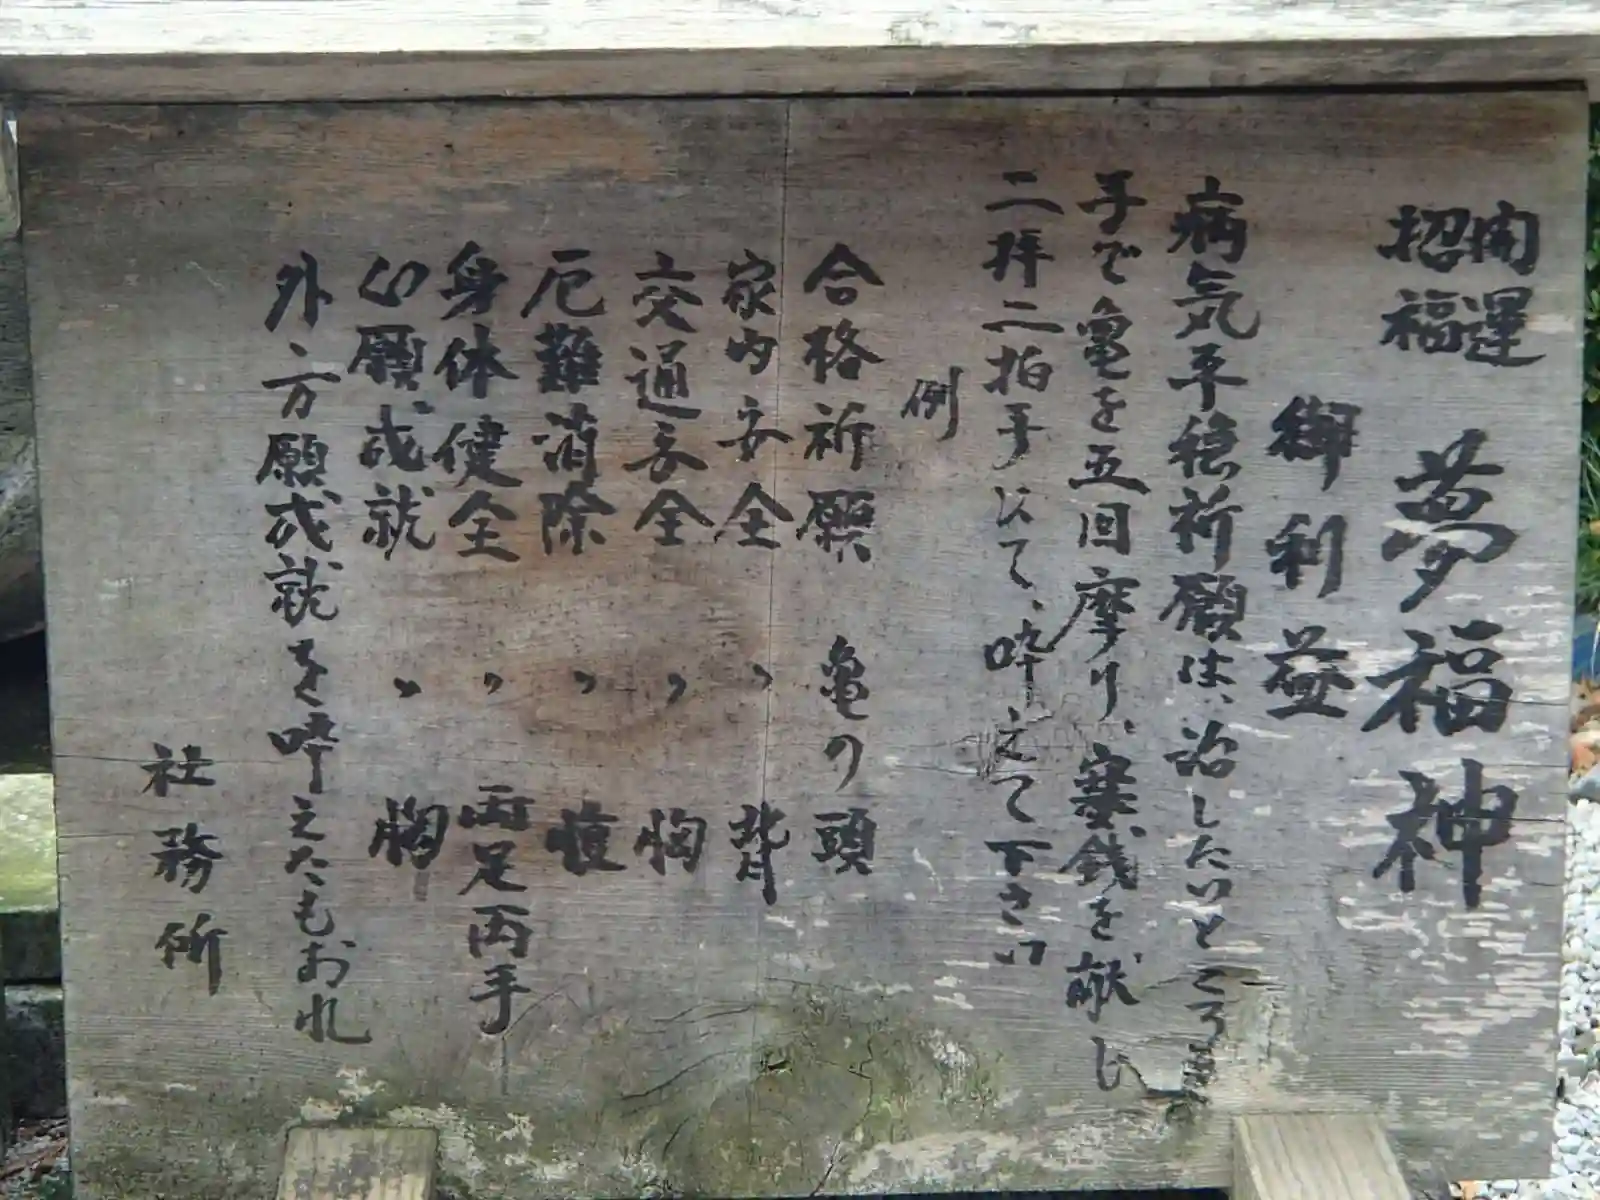 開運
招福
夢福神
御利益
病気平穏祈願は、治したいところを
手で亀を五回摩り、賽銭を献じ
二拝二拍手にて、唱えて下さい
例
合格祈願 亀の頭
家内安全 〃 背
交通安全 〃 胸
厄難消除 〃 腹
身体健全 〃 両足両手
心願成就 〃 胸
外、方願成就を唱えたもおれ
社務所